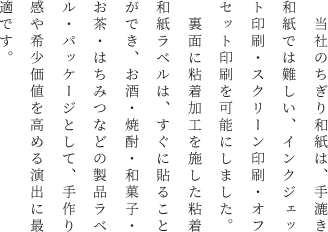 当社のちぎり和紙は、手漉き
和紙では難しい、インクジェッ
ト印刷・スクリーン印刷・オフ
セット印刷を可能にしました。
　裏面に粘着加工を施した粘着
和紙ラベルは、すぐに貼ること
ができ、お酒・焼酎・和菓子・
お茶・はちみつなどの製品ラベ
ル・パッケージとして、手作り
感や希少価値を高める演出に最
適です。